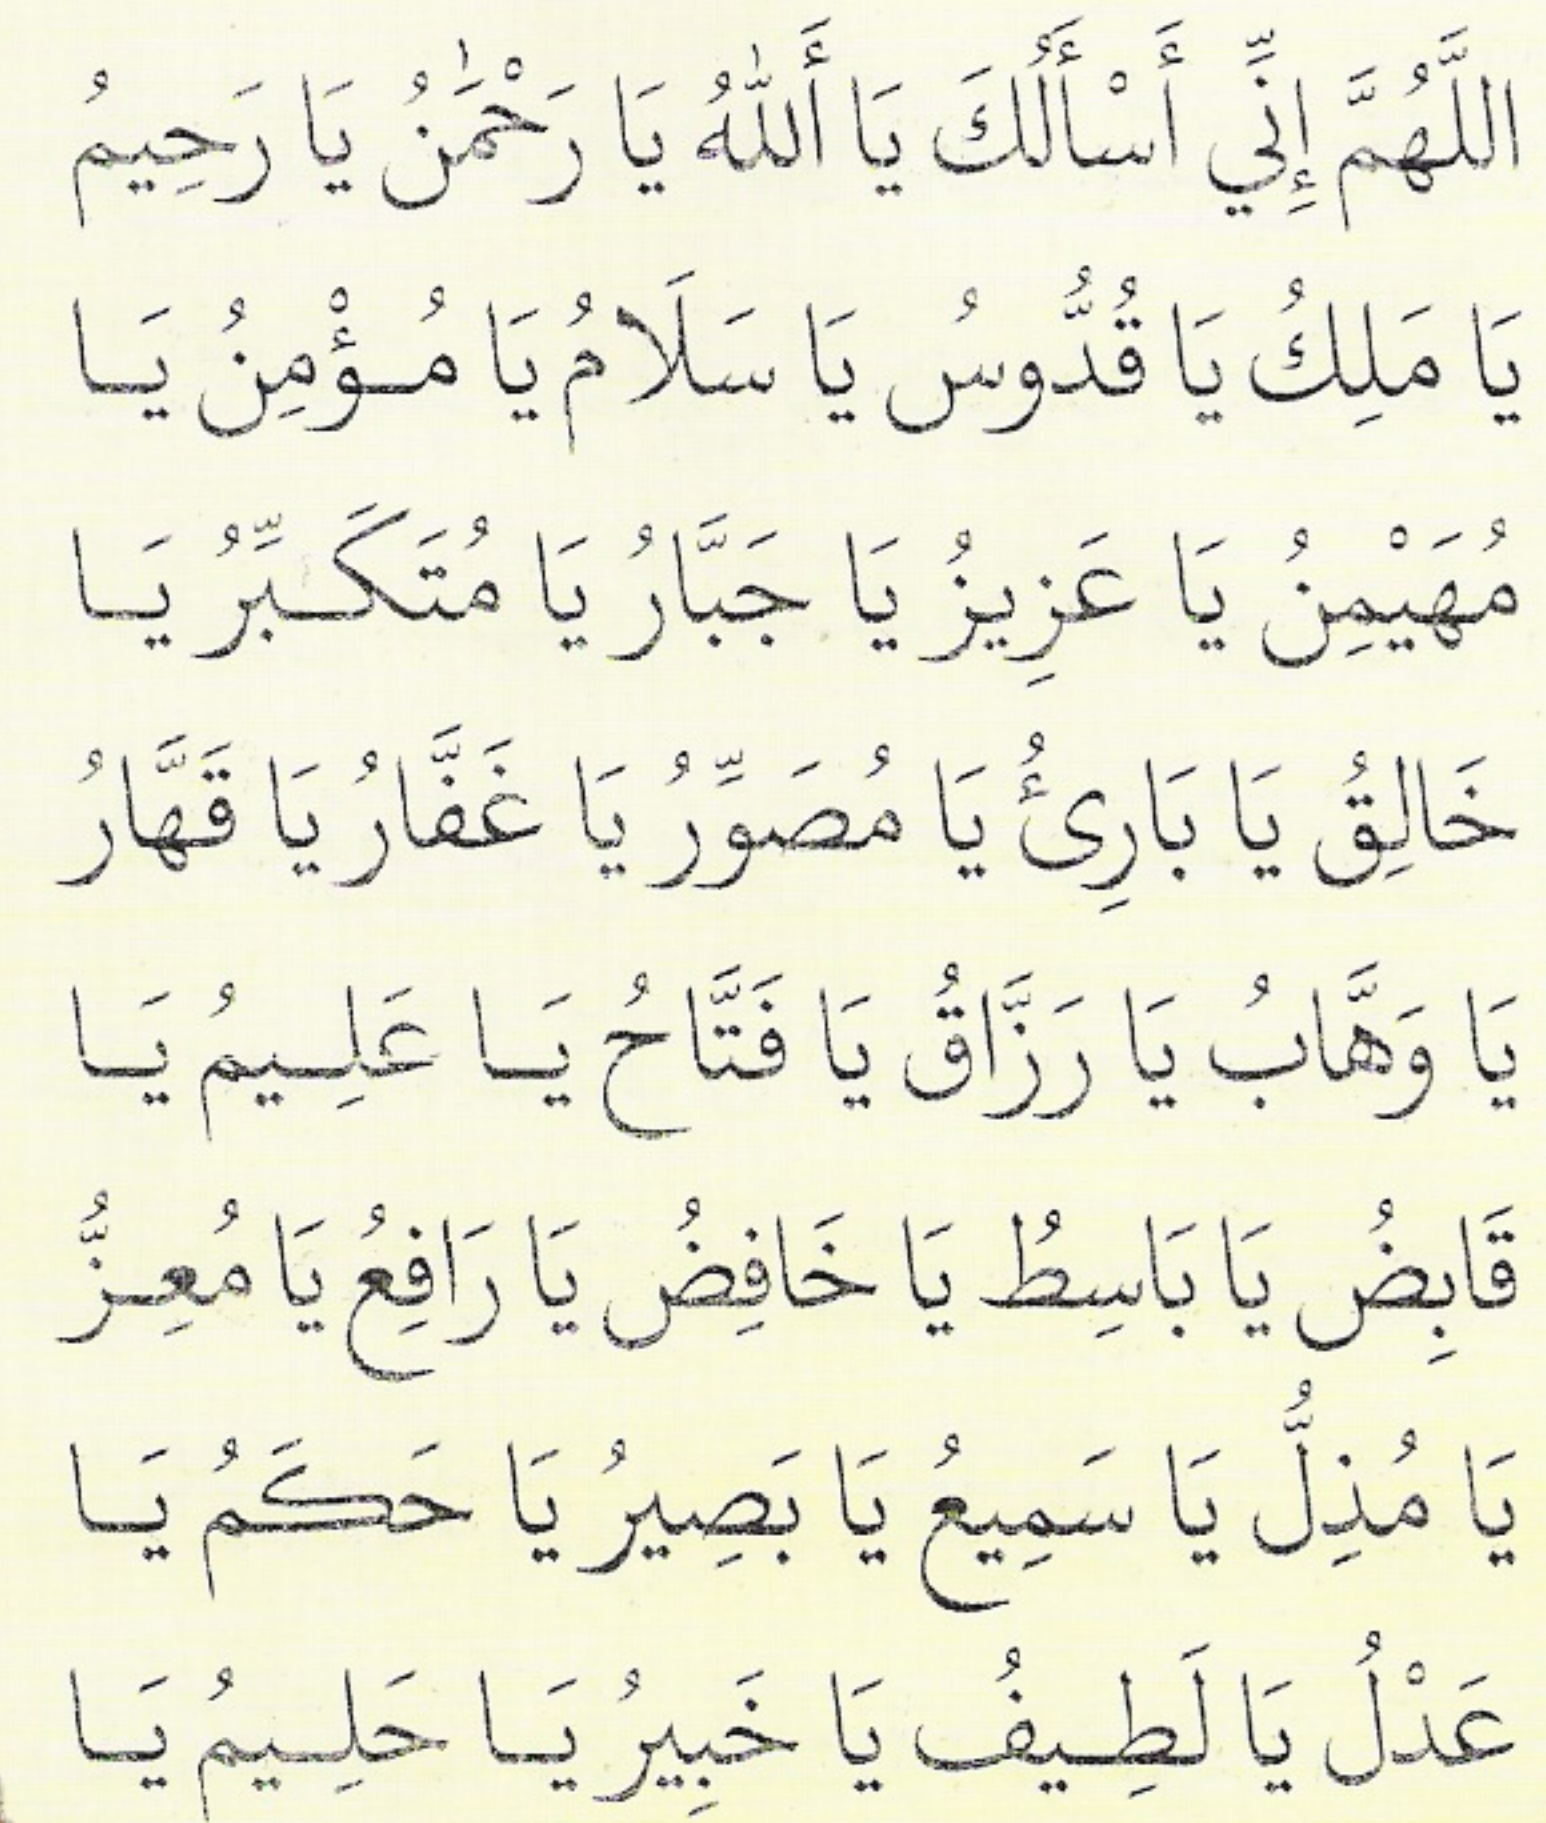 اللَّهُمَّ إِنِّي أَسْأَلُكَ يَا أَللّٰهُ يَا رَحْمَٰنُ يَا رَحِيمُ
يَا مَلِكُ يَا قُدُّوسُ يَا سَلَامُ يَا مُـؤْمِنُ يَـا
مُهَيْمِنُ يَا عَزِيزُ يَا جَبَّارُ يَا مُتَكَـبِّرُ يَـا
خَالِقُ يَا بَارِئُ يَا مُصَوِّرُ يَا غَفَّارُ يَا قَهَّارُ
يَا وَهَّابُ يَا رَزَّاقُ يَا فَتَّاحُ يَـا عَلِـيمُ يَـا
قَابِضُ يَا بَاسِطُ يَا خَافِضُ يَا رَافِعُ يَا مُعِـزُّ
يَا مُذِلُّ يَا سَمِيعُ يَا بَصِيرُ يَا حَكَمُ يَـا
عَدْلُ يَا لَطِـيفُ يَا خَبِيرُ يَـا حَلِـيمُ يَـا